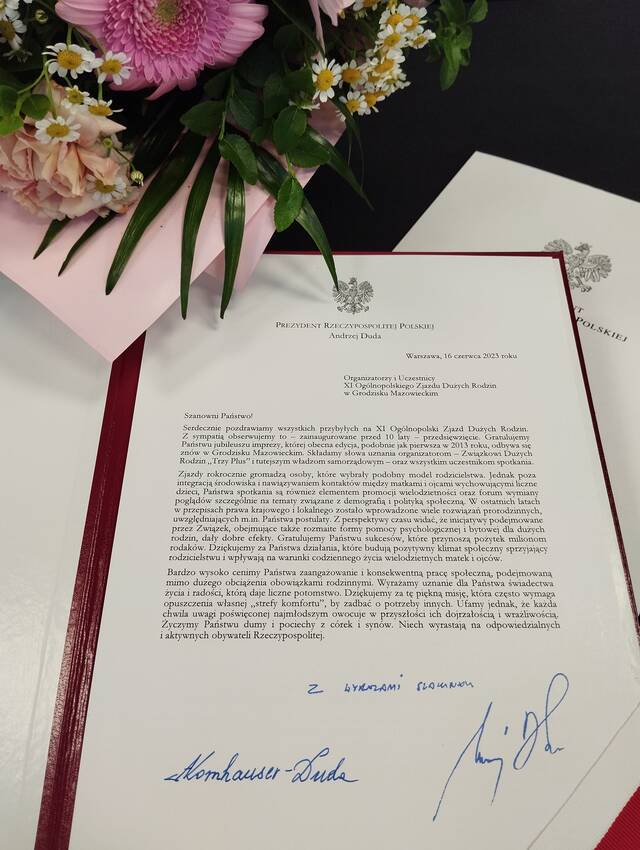 PREZYDENT RZECZYPOSPOLITEJ POLSKIEJ
Andrzej Duda
Warszawa, 16 czerwca 2023 roku
Organizatorzy i Uczestnicy
XI Ogólnopolskiego Zjazdu Dużych Rodzin
w Grodzisku Mazowieckim
Szanowni Państwo!
Serdecznie pozdrawiamy wszystkich przybyłych na XI Ogólnopolski Zjazd Dużych Rodzin.
Z sympatią obserwujemy to – zainaugurowane przed 10 laty – przedsięwzięcie. Gratulujemy
Państwu jubileuszu imprezy, której obecna edycja, podobnie jak pierwsza w 2013 roku, odbywa się
znów w Grodzisku Mazowieckim. Składamy słowa uznania organizatorom – Związkowi Dużych
Rodzin „Trzy Plus” i tutejszym władzom samorządowym – oraz wszystkim uczestnikom spotkania.
Zjazdy rokrocznie gromadzą osoby, które wybrały podobny model rodzicielstwa. Jednak poza
integracją środowiska i nawiązywaniem kontaktów między matkami i ojcami wychowującymi liczne
dzieci, Państwa spotkania są również elementem promocji wielodzietności oraz forum wymiany
poglądów szczególnie na tematy związane z demografią i polityką społeczną. W ostatnich latach
w przepisach prawa krajowego i lokalnego zostało wprowadzone wiele rozwiązań prorodzinnych,
uwzględniających m.in. Państwa postulaty. Z perspektywy czasu widać, że inicjatywy podejmowane
przez Związek, obejmujące także rozmaite formy pomocy psychologicznej i bytowej dla dużych
rodzin, dały dobre efekty. Gratulujemy Państwu sukcesów, które przynoszą pożytek milionom
rodaków. Dziękujemy za Państwa działania, które budują pozytywny klimat społeczny sprzyjający
rodzicielstwu i wpływają na warunki codziennego życia wielodzietnych matek i ojców.
Bardzo wysoko cenimy Państwa zaangażowanie i konsekwentną pracę społeczną, podejmowaną
mimo dużego obciążenia obowiązkami rodzinnymi. Wyrażamy uznanie dla Państwa świadectwa
życia i radości, którą daje liczne potomstwo. Dziękujemy za tę piękną misję, która często wymaga
opuszczenia własnej „strefy komfortu”, by zadbać o potrzeby innych. Ufamy jednak, że każda
chwila uwagi poświęconej najmłodszym owocuje w przyszłości ich dojrzałością i wrażliwością.
Życzymy Państwu dumy i pociechy z córek i synów. Niech wyrastają na odpowiedzialnych
i aktywnych obywateli Rzeczypospolitej.
Z WYRAZAMI SZACUNKU
AKornhauser-Duda
POLSKIEJ